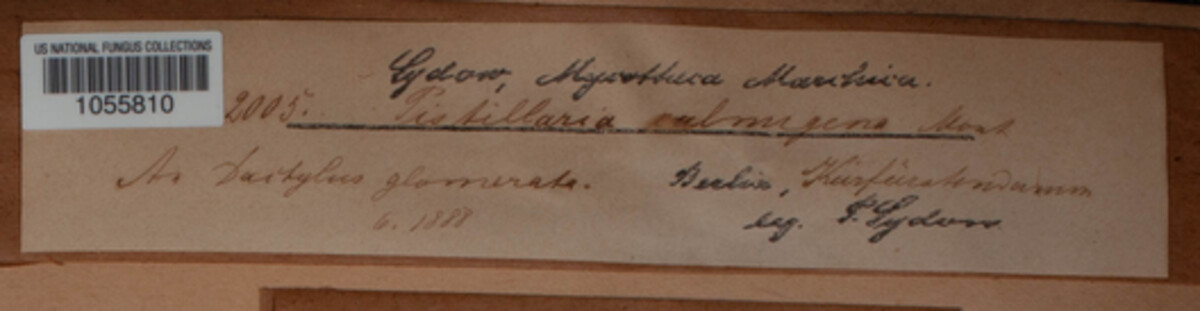 US NATIONAL FUNGUS COLLECTIONS
1055810
Sydow, Mycotheca Marchica.
2005. Pistillaria culmigena Mont
An Dactylus glomerata. Berlin, Kurfürstendamm
6. 1888 leg. P. Sydow